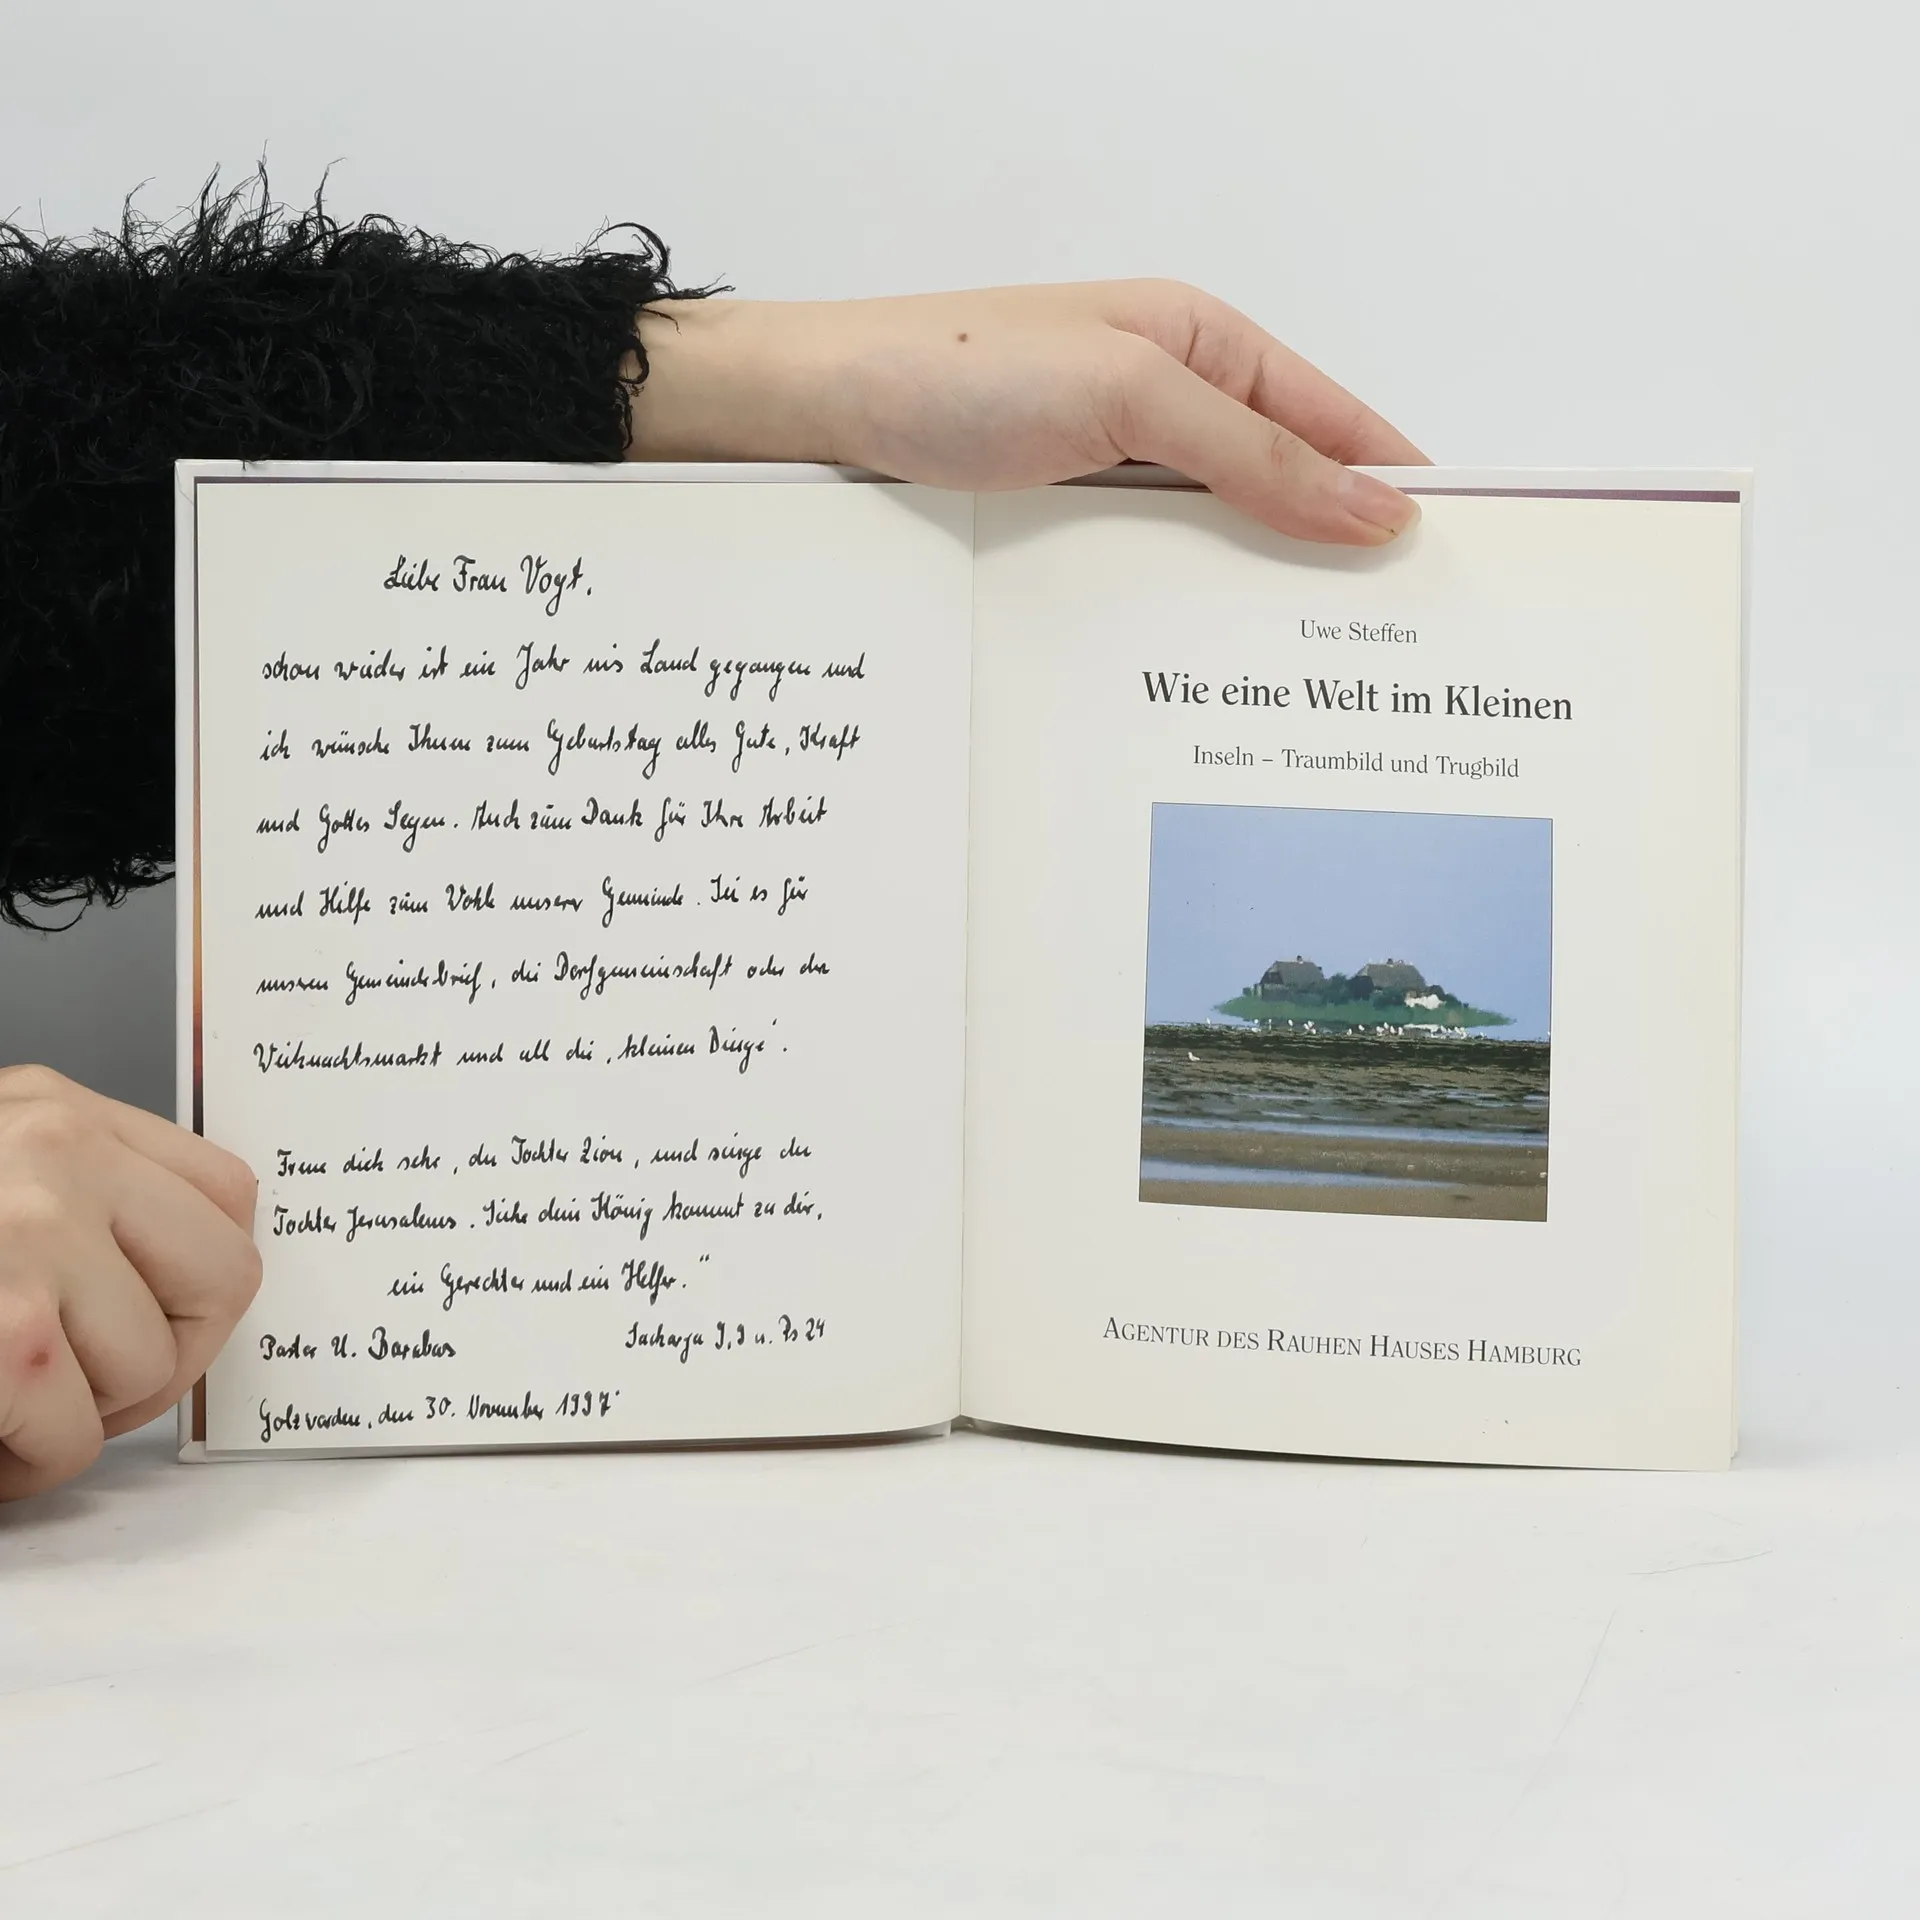 Liebe Frau Vogt,
schon wieder ist ein Jahr ins Land gegangen und
ich wünsche Ihnen zum Geburtstag alles Gute, Kraft
und Gottes Segen. Auch zum Dank für Ihre Arbeit
und Hilfe zum Wohle unserer Gemeinde. Sei es für
unseren Gemeindebrief, die Dorfgemeinschaft oder den
Weihnachtsmarkt und all die "kleinen Dinge".
Freue dich sehr, du Tochter Zion, und singe du
Tochter Jerusalems. Siehe dein König kommt zu dir,
ein Gerechter und ein Helfer."
Sacharja 9,9 u. Ps 24
Pastor U.
den 30. November 1997
Uwe Steffen
Wie eine Welt im Kleinen
Inseln – Traumbild und Trugbild
AGENTUR DES RAUHEN HAUSES HAMBURG